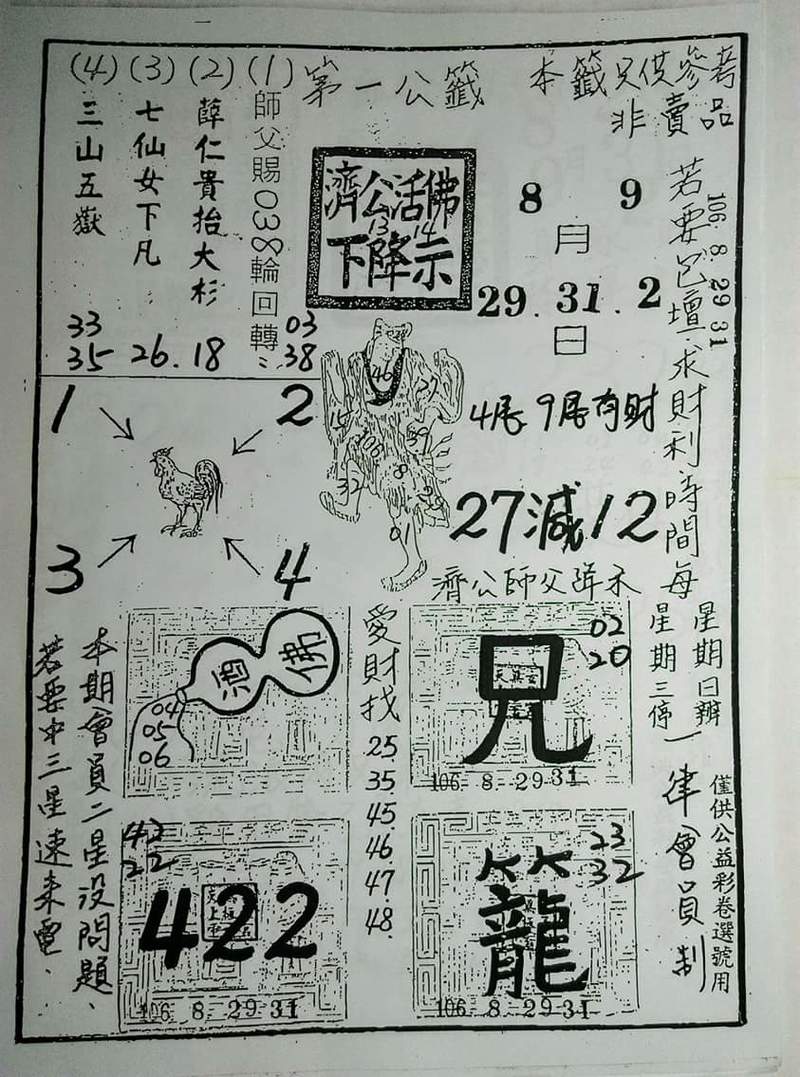 本籤只供參考
非賣品
第一公籤
(1)師父賜038輪回轉 03 38
(2)薛仁貴抬大杉 18
(3)七仙女下凡 26.
(4)三山五嶽 33 35
濟公活佛
13 14
下降示
8 月 9
29.31.2
日
106.8.29 31
若要包壇求財利時間每
星期日辨
星期三停
一律會員制
僅供公益彩卷選號用
4尾 9尾有財
27減12
濟公師父降示
1
2
3
4
46
27
39
108
8
32
01
酒佛
04
05
06
愛財找
25.
35.
45.
46.
47.
48.
兄
02
20
106.8.29 31
42
22
422
106.8.29 31
籠
23
32
106.8.29 31
本期會員二星没問題、
若要中三星速来電、